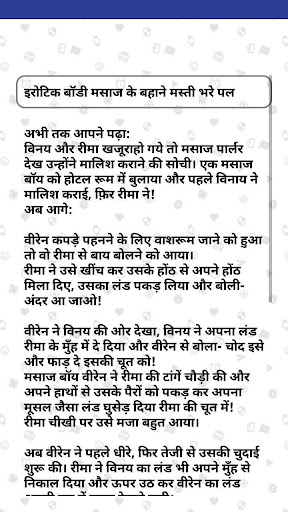 इरोटिक बॉडी मसाज के बहाने मस्ती भरे पल
अभी तक आपने पढ़ा:
विनय और रीमा खजूराहो गये तो मसाज पार्लर
देख उन्होंने मालिश कराने की सोची। एक मसाज
बॉय को होटल रूम में बुलाया और पहले विनाय ने
मालिश कराई, फ़िर रीमा ने!
अब आगे:
वीरेन कपड़े पहनने के लिए वाशरूम जाने को हुआ
तो वो रीमा से बाय बोलने को आया।
रीमा ने उसे खींच कर उसके होंठ से अपने होंठ
मिला दिए, उसका लंड पकड़ लिया और बोली-
अंदर आ जाओ!
वीरेन ने विनय की ओर देखा, विनय ने अपना लंड
रीमा के मुँह में दे दिया और वीरेन से बोला- चोद इसे
और फाड़ दे इसकी चूत को!
मसाज बॉय वीरेन ने रीमा की टांगें चौड़ी की और
अपने हाथों से उसके पैरों को पकड़ कर अपना
मूसल जैसा लंड घुसेड़ दिया रीमा की चूत में!
रीमा चीखी पर उसे मजा बहुत आया।
अब वीरेन ने पहले धीरे, फिर तेजी से उसकी चुदाई
शुरू की। रीमा ने विनय का लंड भी अपने मुँह से
निकाल दिया और ऊपर उठ कर वीरेन का लंड